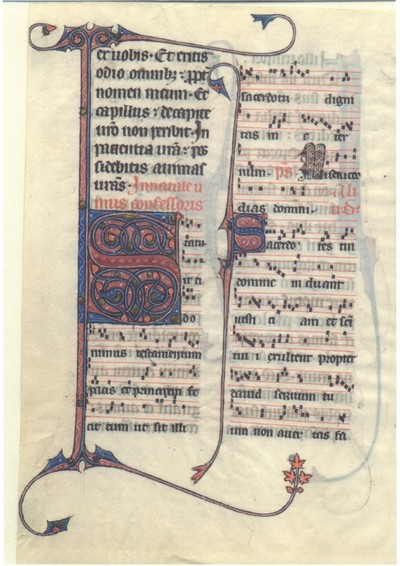 ex uobis. Et eritis
odio omnibus. ppt
nomen meum. Et
capillus. de capite
uro non peribit. In
patientia ura. pos
sidebitis animas
uras. In natale u
nius confessoris
Statu
it ei
do
minus testamentum
pacis et principem fe
cit eum ut sit illi
sacerdotii digni
tas in e ter
num. ps. Misericor
dias domini.
Sacerdo tes tui
domine induant
iusti ci am et sci
tui exultent propter
dauid seruum tu
um non auer tas fa